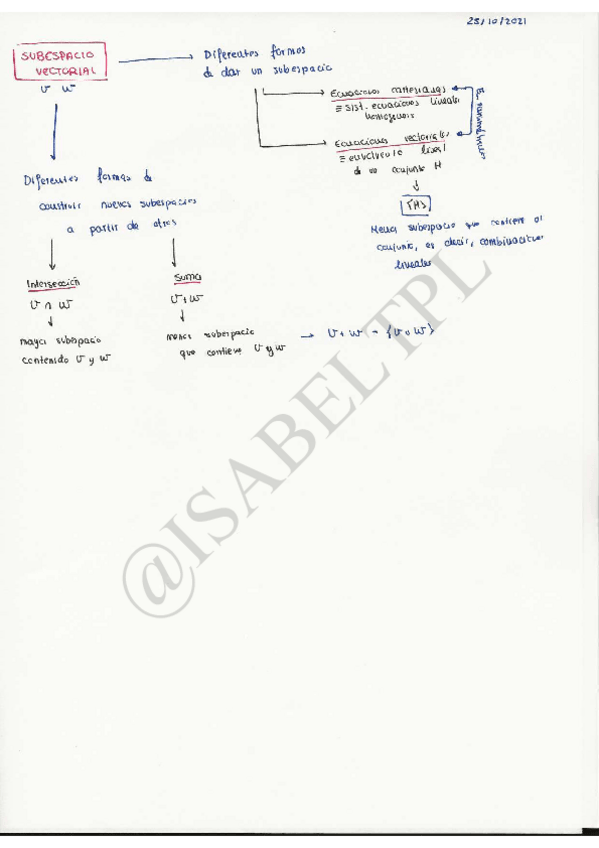 25/10/2021
SUBESPACIO
VECTORIAL
U W
Diferentes formas
de dar un subespacio
Ecuaciones cartesianas
≡ sist. ecuaciones lineales
homogeneas
Ecuaciones vectoriales
≡ envolvente lineal
de un conjunto H
[H]
Menor subespacio que contiene al
conjunto, es decir, combinaciones
lineales
Diferentes formas de
construir nuevos subespacios
a partir de otros
Intersección
U ∩ W
mayor subespacio
contenido U y W
Suma
U + W
menor subespacio
que contiene U y W
→ U + W = {U ∪ W}
@ISABELTPL